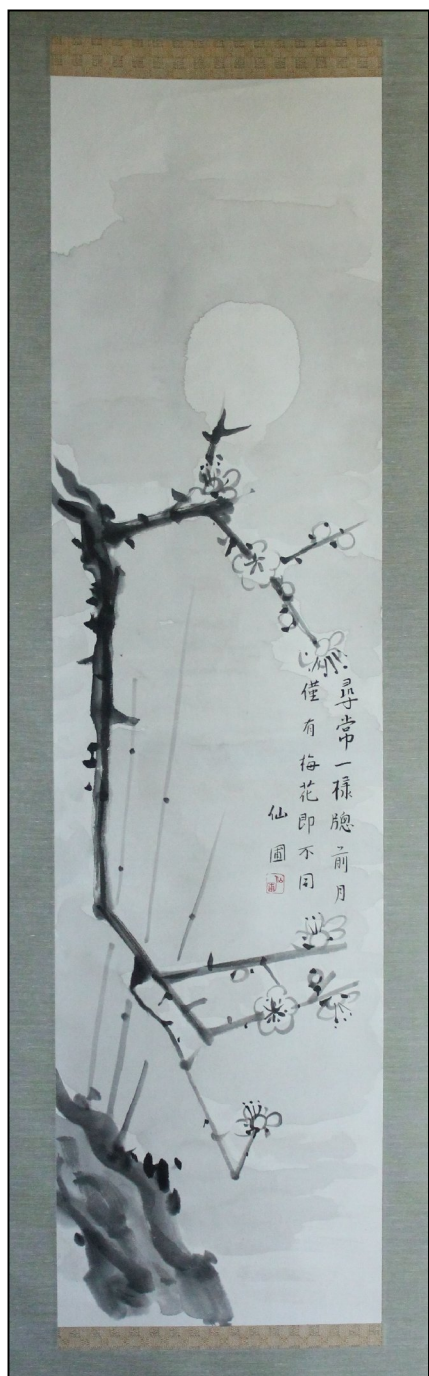 尋常一樣牕前月
僅有梅花即不同
仙圃